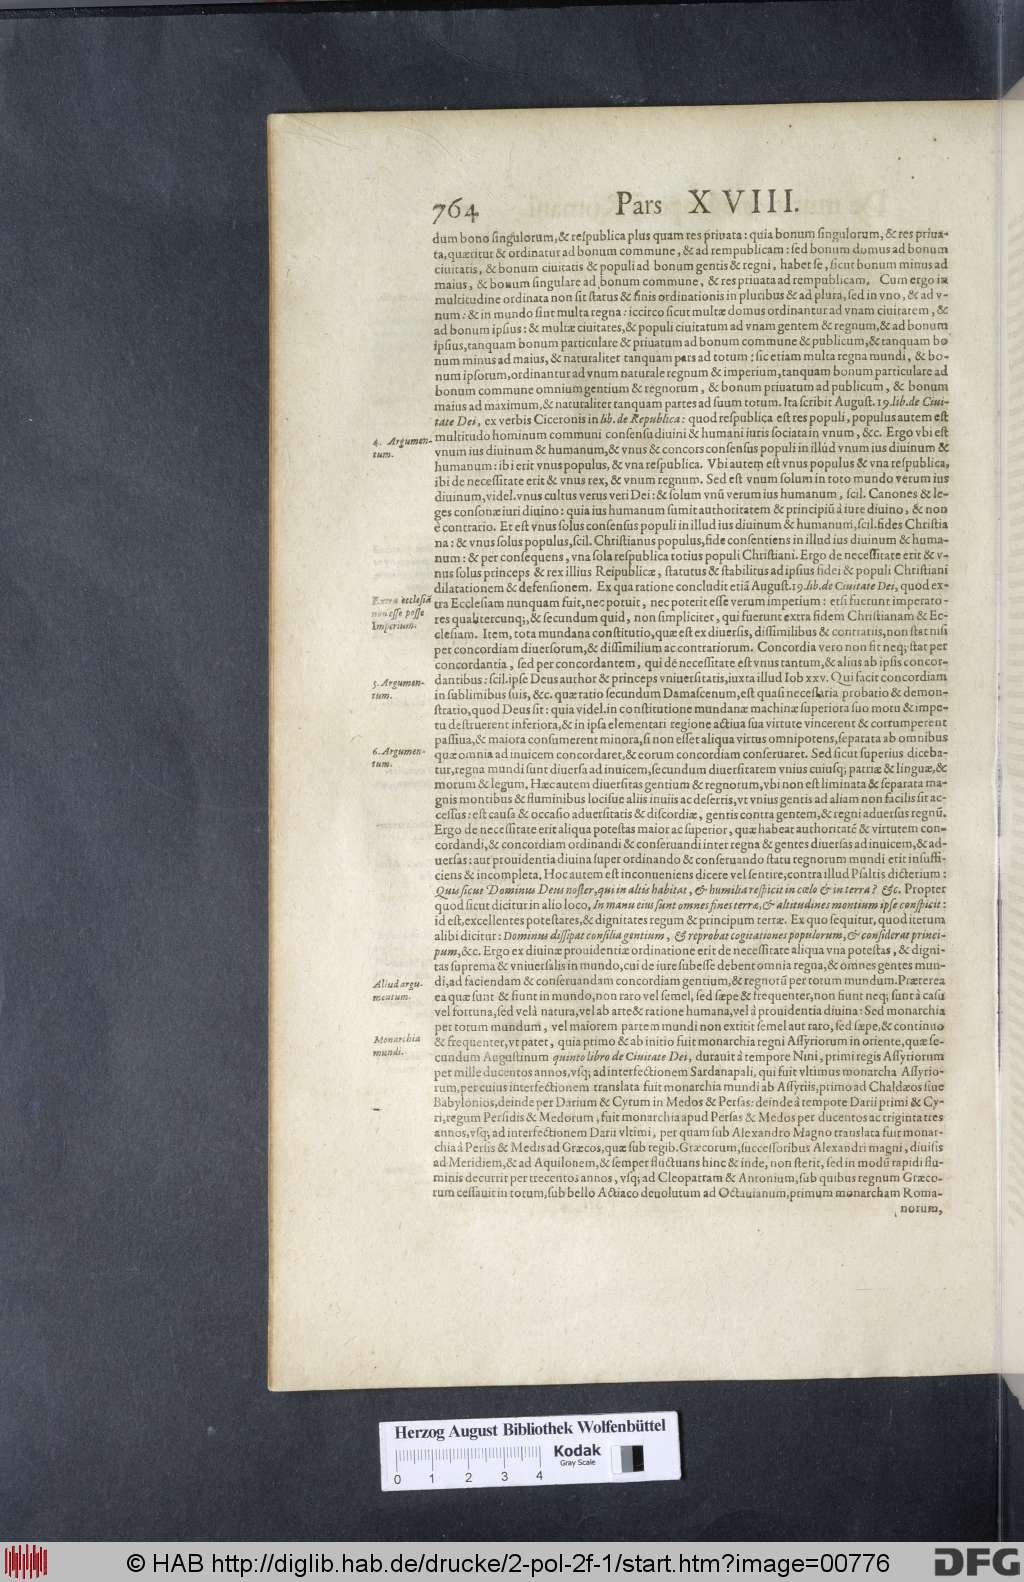 764 Pars XVIII.
dum bono ſingulorum, & reſpublica plus quam res priuata: quia bonum ſingulorum, & res priua-
ta, quæritur & ordinatur ad bonum commune, & ad rempublicam: ſed bonum domus ad bonum
ciuitatis, & bonum ciuitatis & populi ad bonum gentis & regni, habet ſe, ſicut bonum minus ad
maius, & bonum ſingulare ad bonum commune, & res priuata ad rempublicam. Cum ergo in
multitudine ordinata non ſit ſtatus & finis ordinationis in pluribus & ad plura, ſed in vno, & ad v-
num: & in mundo ſint multa regna: iccirco ſicut multæ domus ordinantur ad vnam ciuitatem, &
ad bonum ipſius: & multæ ciuitates, & populi ciuitatum ad vnam gentem & regnum, & ad bonum
ipſius, tanquam bonum particulare & priuatum ad bonum commune & publicum, & tanquam bo
num minus ad maius, & naturaliter tanquam pars ad totum: ſic etiam multa regna mundi, & bo-
num ipſorum, ordinantur ad vnum naturale regnum & imperium, tanquam bonum particulare ad
bonum commune omnium gentium & regnorum, & bonum priuatum ad publicum, & bonum
maius ad maximum, & naturaliter tanquam partes ad ſuum totum. Ita ſcribit Auguſt. 19. lib. de Ciui-
tate Dei, ex verbis Ciceronis in lib. de Republica: quod reſpublica eſt res populi, populus autem eſt
4. Argumen-
tum.
multitudo hominum communi conſenſu diuini & humani iuris ſociata in vnum, &c. Ergo vbi eſt
vnum ius diuinum & humanum, & vnus & concors conſenſus populi in illud vnum ius diuinum &
humanum: ibi erit vnus populus, & vna reſpublica. Vbi autem eſt vnus populus & vna reſpublica,
ibi de neceſſitate erit & vnus rex, & vnum regnum. Sed eſt vnum ſolum in toto mundo verum ius
diuinum, videl. vnus cultus verus veri Dei: & ſolum vnũ verum ius humanum, ſcil. Canones & le-
ges conſonæ iuri diuino: quia ius humanum ſumit authoritatem & principiũ à iure diuino, & non
è contrario. Et eſt vnus ſolus conſenſus populi in illud ius diuinum & humanum, ſcil. fides Chriſtia
na: & vnus ſolus populus, ſcil. Chriſtianus populus, fide conſentiens in illud ius diuinum & huma-
num: & per conſequens, vna ſola reſpublica totius populi Chriſtiani. Ergo de neceſſitate erit & v-
nus ſolus princeps & rex illius Reipublicæ, ſtatutus & ſtabilitus ad ipſius fidei & populi Chriſtiani
dilatationem & defenſionem. Ex qua ratione concludit etiã Auguſt. 19. lib. de Ciuitate Dei, quod ex-
Extra eccleſiã
non eſſe poſſe
Imperium.
tra Eccleſiam nunquam fuit, nec potuit, nec poterit eſſe verum imperium: etſi fuerunt imperato-
res qualitercunq;, & ſecundum quid, non ſimpliciter, qui fuerunt extra fidem Chriſtianam & Ec-
cleſiam. Item, tota mundana conſtitutio, quæ eſt ex diuerſis, diſſimilibus & contrariis, non ſtat niſi
per concordiam diuerſorum, & diſſimilium ac contrariorum. Concordia vero non fit neq; ſtat per
concordantia, ſed per concordantem, qui de neceſſitate eſt vnus tantum, & alius ab ipſis concor-
5. Argumen-
tum.
dantibus: ſcil. ipſe Deus author & princeps vniuerſitatis, iuxta illud Iob xxv. Qui facit concordiam
in ſublimibus ſuis, &c. quæ ratio ſecundum Damaſcenum, eſt quaſi neceſſaria probatio & demon-
ſtratio, quod Deus ſit: quia videl. in conſtitutione mundanæ machinæ ſuperiora ſuo motu & impe-
tu deſtruerent inferiora, & in ipſa elementari regione actiua ſua virtute vincerent & corrumperent
paſſiua, & maiora conſumerent minora, ſi non eſſet aliqua virtus omnipotens, ſeparata ab omnibus
6. Argumen-
tum.
quæ omnia ad inuicem concordaret, & eorum concordiam conſeruaret. Sed ſicut ſuperius diceba-
tur, regna mundi ſunt diuerſa ad inuicem, ſecundum diuerſitatem vnius cuiuſq; patriæ & linguæ, &
morum & legum. Hæc autem diuerſitas gentium & regnorum, vbi non eſt liminata & ſeparata ma-
gnis montibus & fluminibus lociſue aliis inuiis ac deſertis, vt vnius gentis ad aliam non facilis ſit ac-
ceſſus: eſt cauſa & occaſio aduerſitatis & diſcordiæ, gentis contra gentem, & regni aduerſus regnũ.
Ergo de neceſſitate erit aliqua poteſtas maior ac ſuperior, quæ habeat authoritatẽ & virtutem con-
cordandi, & concordiam ordinandi & conſeruandi inter regna & gentes diuerſas ad inuicem, & ad-
uerſas: aut prouidentia diuina ſuper ordinando & conſeruando ſtatu regnorum mundi erit inſuffi-
ciens & incompleta. Hoc autem eſt inconueniens dicere vel ſentire, contra illud Pſaltis dicterium:
Quis ſicut Dominus Deus noſter, qui in altis habitat, & humilia reſpicit in cœlo & in terra? &c. Propter
quod ſicut dicitur in alio loco, In manu eius ſunt omnes fines terræ, & altitudines montium ipſe conſpicit:
id eſt, excellentes poteſtates, & dignitates regum & principum terræ. Ex quo ſequitur, quod iterum
alibi dicitur: Dominus diſſipat conſilia gentium, & reprobat cogitationes populorum, & conſiderat princi-
pum, &c. Ergo ex diuinæ prouidentiæ ordinatione erit de neceſſitate aliqua vna poteſtas, & digni-
tas ſuprema & vniuerſalis in mundo, cui de iure ſubeſſe debent omnia regna, & omnes gentes mun-
Aliud argu-
mentum.
di, ad faciendam & conſeruandam concordiam gentium, & regnorũ per totum mundum. Præterea
ea quæ ſunt & fiunt in mundo, non raro vel ſemel, ſed ſæpe & frequenter, non fiunt neq; ſunt à caſu
vel fortuna, ſed vel à natura, vel ab arte & ratione humana, vel à prouidentia diuina: Sed monarchia
per totum mundum, vel maiorem partem mundi non extitit ſemel aut raro, ſed ſæpe, & continuo
Monarchia
mundi.
& frequenter, vt patet, quia primo & ab initio fuit monarchia regni Aſſyriorum in oriente, quæ ſe-
cundum Auguſtinum quinto libro de Ciuitate Dei, durauit à tempore Nini, primi regis Aſſyriorum
per mille ducentos annos, vſq; ad interfectionem Sardanapali, qui fuit vltimus monarcha Aſſyrio-
rum, per cuius interfectionem translata fuit monarchia mundi ab Aſſyriis, primo ad Chaldæos ſiue
Babylonios, deinde per Darium & Cyrum in Medos & Perſas: deinde à tempore Darii primi & Cy-
ri, regum Perſidis & Medorum, fuit monarchia apud Perſas & Medos per ducentos ac triginta tres
annos, vſq; ad interfectionem Darii vltimi, per quam ſub Alexandro Magno translata fuit monar-
chia à Perſis & Medis ad Græcos, quæ ſub regib. Græcorum, ſucceſſoribus Alexandri magni, diuiſis
ad Meridiem, & ad Aquilonem, & ſemper fluctuans hinc & inde, non ſtetit, ſed in modũ rapidi flu-
minis decurrit per trecentos annos, vſq; ad Cleopatram & Antonium, ſub quibus regnum Græco-
rum ceſſauit in totum, ſub bello Actiaco deuolutum ad Octauianum, primum monarcham Roma-
norum,
Herzog August Bibliothek Wolfenbüttel
0 1 2 3 4
Kodak
Gray Scale
© HAB http://diglib.hab.de/drucke/2-pol-2f-1/start.htm?image=00776
DFG